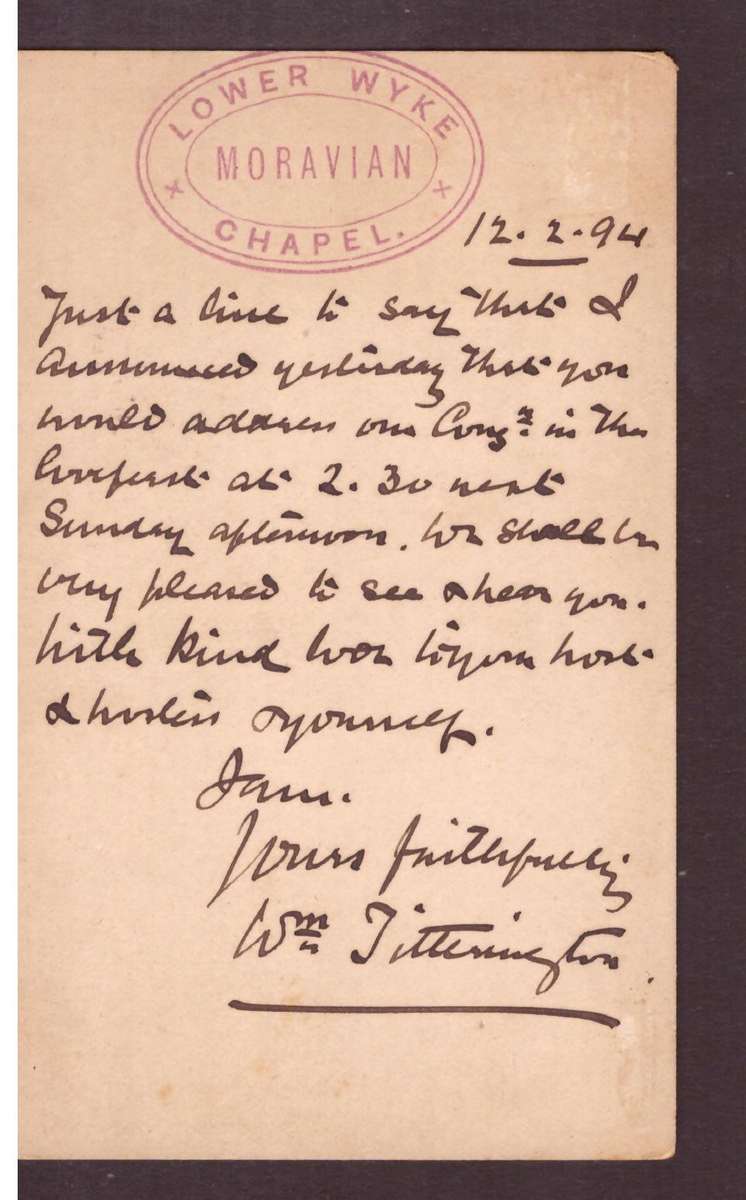 LOWER WYKE
MORAVIAN
CHAPEL.
12.2.94
Just a line to say that I
announced yesterday that you
would address our Congn. in the
lovefeast at 2.30 next
Sunday afternoon. We shall be
very pleased to see & hear you.
With kind love to your host
& hostess & yourself.
I am.
Yours faithfully
Wm Titterington.